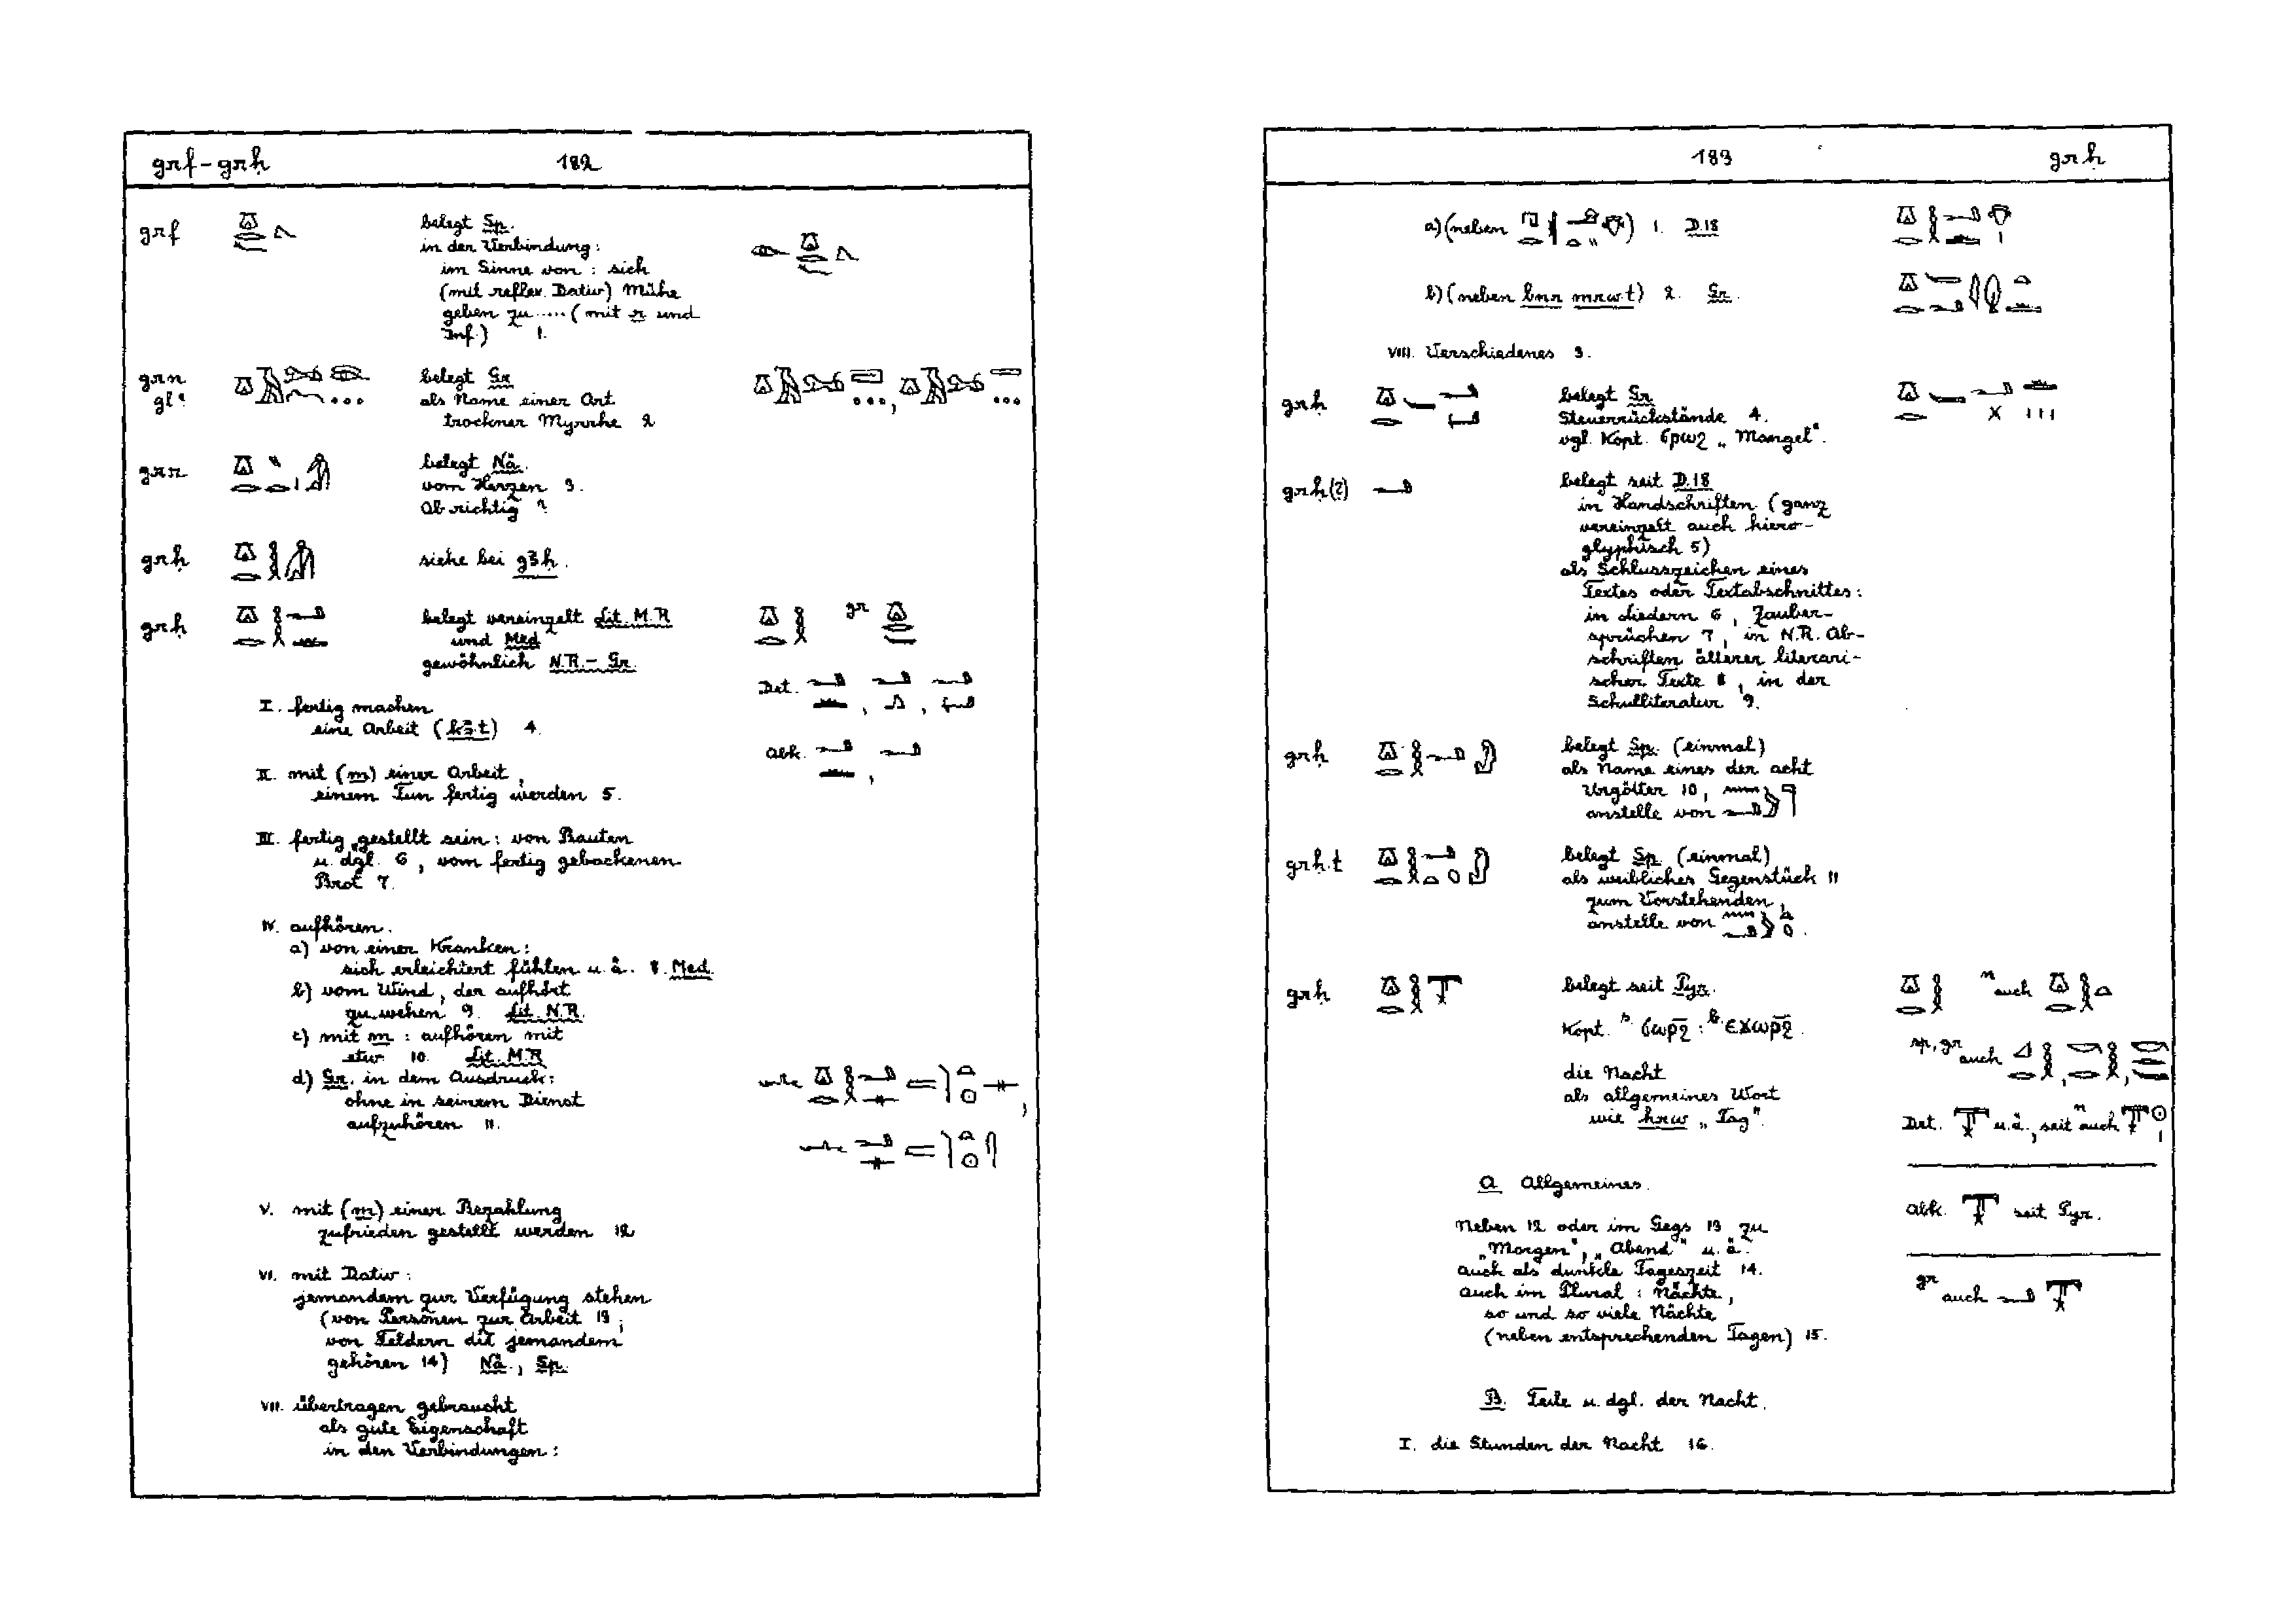 grf - grḥ 182
grf
belegt Sp.
in der Verbindung:
im Sinne von: sich
(mit reflex. Dativ) Mühe
geben zu ..... (mit r und
Inf.) 1.
grn
gl
belegt Gr
als Name einer Art
trockner Myrrhe 2
grr
belegt Nä.
vom Herzen 3.
Ob richtig ?
grḥ
siehe bei gꜣḥ.
grḥ
belegt vereinzelt Lit. M.R
und Med
gewöhnlich N.R. - Gr.
gr
Det.
Abk.
I. fertig machen
eine Arbeit (kꜣ.t) 4.
II. mit (m) einer Arbeit,
einem Tun fertig werden 5.
III. fertig gestellt sein: von Bauten
u. dgl. 6, vom fertig gebackenen
Brot 7.
IV. aufhören.
a) von einer Kranken:
sich erleichtert fühlen u. ä. 8. Med.
b) vom Wind, der aufhört
zu wehen 9. Lit. N.R.
c) mit m: aufhören mit
etw 10. Lit. M.R
d) Gr. in dem Ausdruck:
ohne in seinem Dienst
aufzuhören 11.
V. mit (m) einer Bezahlung
zufrieden gestellt werden 12
VI. mit Dativ:
jemandem zur Verfügung stehen
(von Personen zur Arbeit 13,
von Feldern die jemandem
gehören 14) Nä., Sp.
VII. übertragen gebraucht
als gute Eigenschaft
in den Verbindungen:
183 grḥ
a) (neben ) 1. D.18
b) (neben bnr mrw.t) 2. Gr.
VIII. Verschiedenes 3.
grḥ
belegt Gr
Steuerrückstände 4.
vgl. Kopt. ϭⲣⲱϩ „Mangel".
grḥ(?)
belegt seit D.18
in Handschriften (ganz
vereinzelt auch hiero-
glyphisch 5)
als Schlusszeichen eines
Textes oder Textabschnittes:
in Liedern 6, Zauber-
sprüchen 7, in N.R. Ab-
schriften älterer literari-
scher Texte 8, in der
Schulliteratur 9.
grḥ
belegt Sp. (einmal)
als Name eines der acht
Urgötter 10,
anstelle von
grḥ.t
belegt Sp (einmal)
als weibliches Gegenstück 11
zum Vorstehenden,
anstelle von
grḥ
belegt seit Pyr.
Kopt. s. ϭⲱⲣϩ̄ : b. ⲉϫⲱⲣϩ̄.
die Nacht
als allgemeines Wort
wie hrw „Tag".
n auch
sp, gr auch
Det. u. ä., seit n auch
Abk. seit Pyr.
gr auch
A Allgemeines.
Neben 12 oder im Gegs 13 zu
„Morgen", „Abend" u. ä.
auch als dunkle Tageszeit 14.
auch im Plural: Nächte,
so und so viele Nächte
(neben entsprechenden Tagen) 15.
B. Teile u. dgl. der Nacht.
I. die Stunden der Nacht 16.